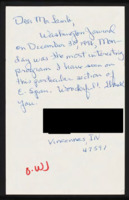 Dear Mr. Lamb,
Washington Journal
on December 7th, 1998, Mon-
day was the most interesting
program I have seen on
this particular section of
C-Span. Wonderful! Thank
You!
Vincennes IN
47591